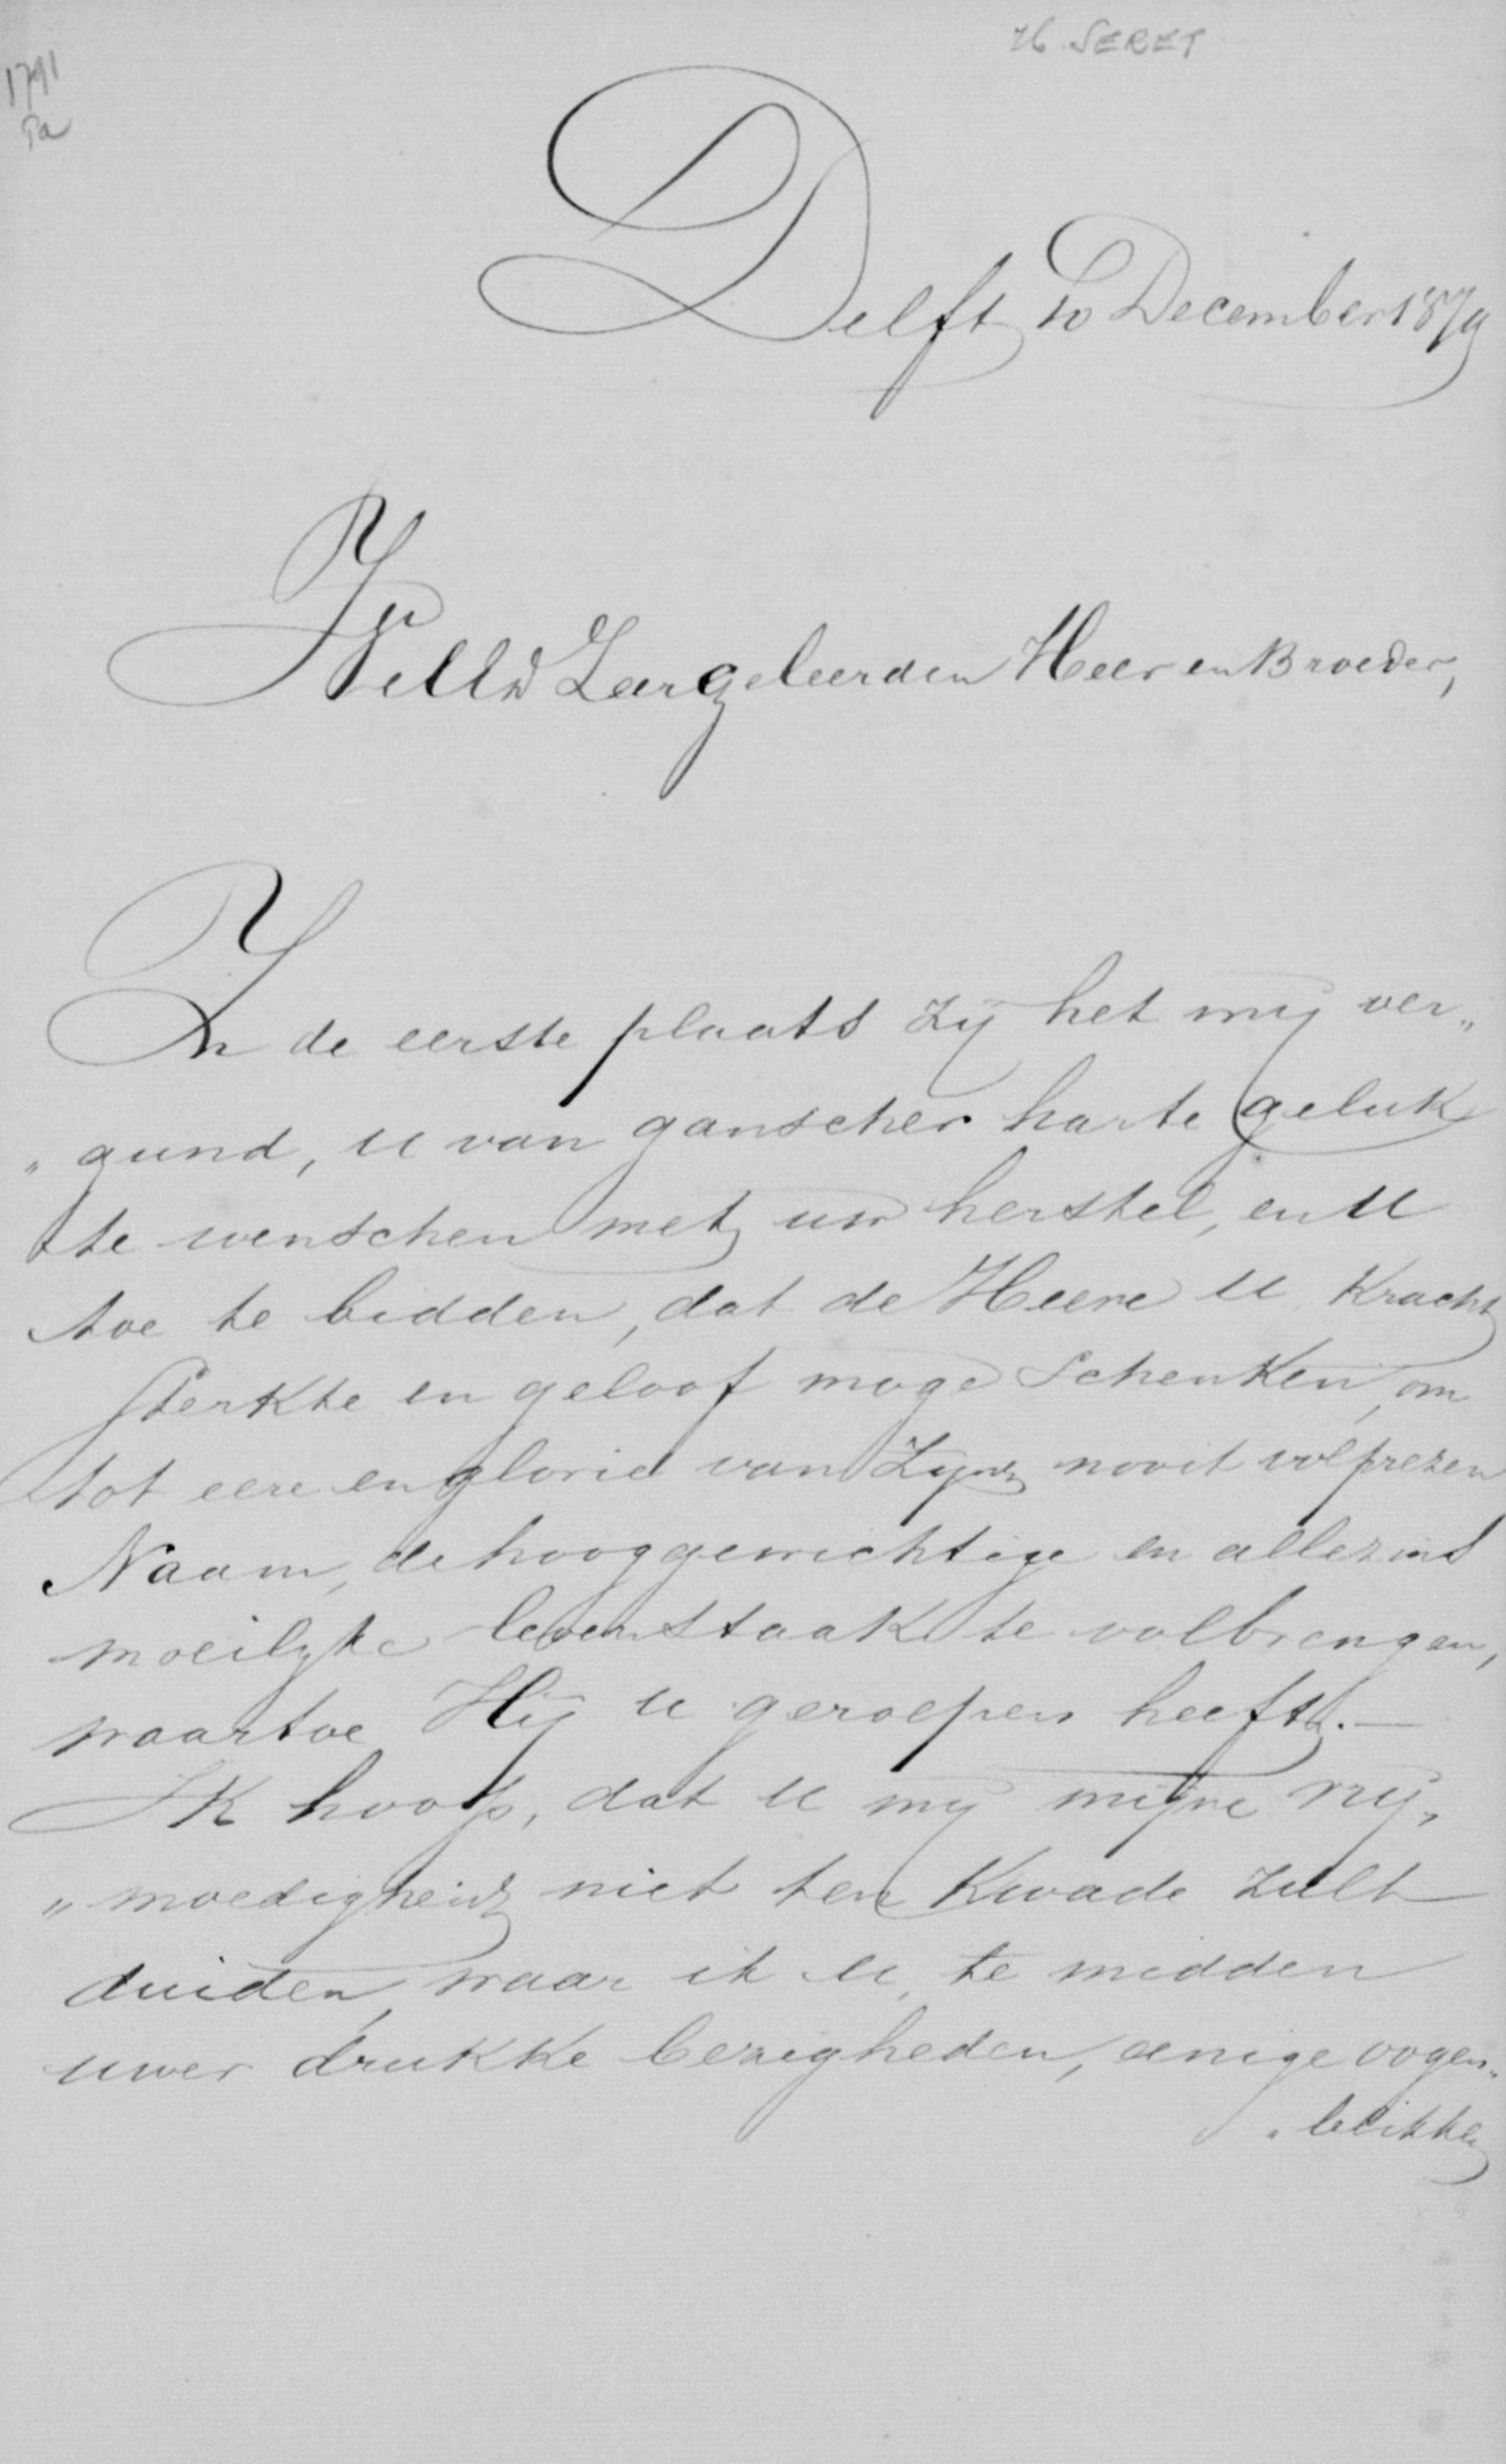 H. SERET
1791
Pa
Delft 10 December 1879
WelEd Zeergeleerden Heer en Broeder,
In de eerste plaats zij het mij ver„
„gund, u van ganscher harte geluk
te wenschen met uw herstel, en U
toe te bidden, dat de Heere U kracht
sterkte en geloof moge schenken, om
tot eere en glorie van Zijn nooit volprezen
Naam, de hooggewichtige en allezins
moeilijke levenstaak te volbrengen,
waartoe Hij u geroepen heeft.—
Ik hoop, dat U mij mijne vrij„
„moedigheid niet ten kwade zult
duiden, waar ik u, te midden
uwer drukke bezigheden, eenige oogen„
„blikken